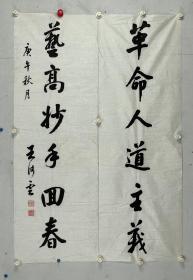 革命人道主義
藝高妙手回春
庚午秋月
王河雲